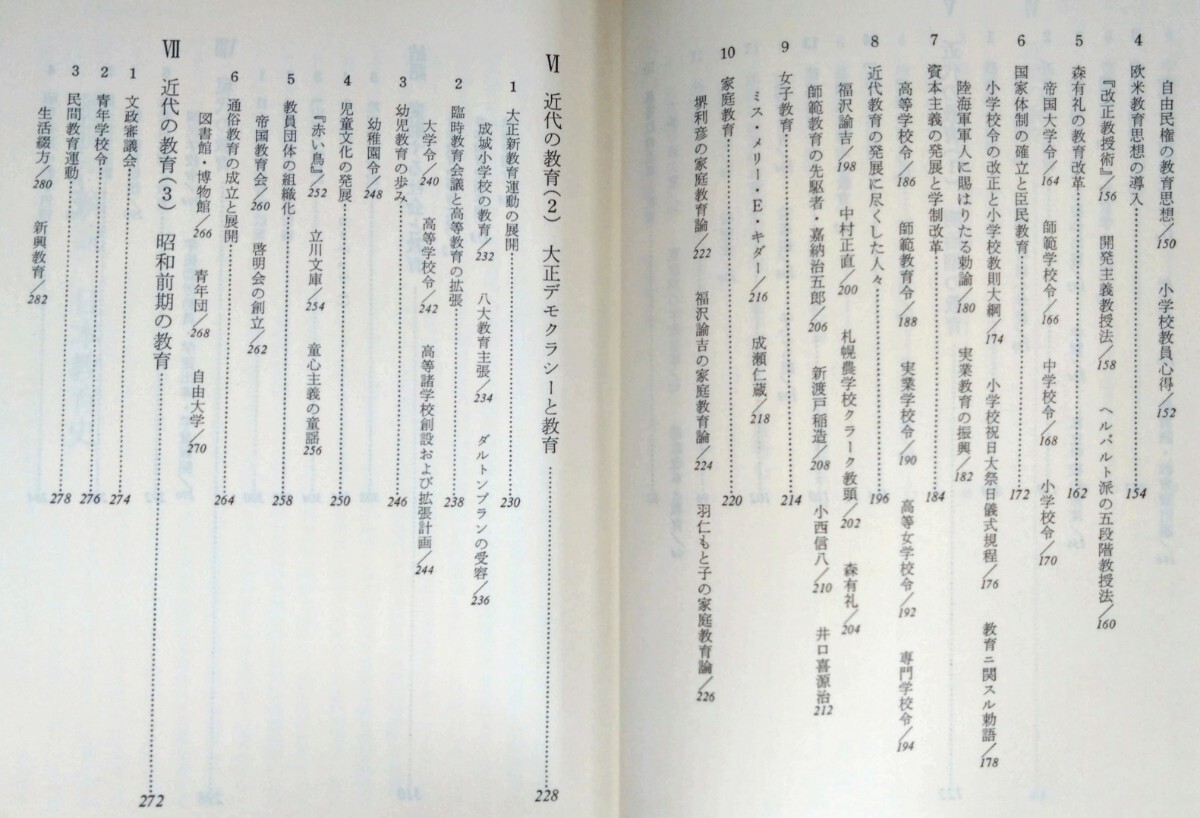 自由民権の教育思想／150　小学校教員心得／152
4　欧米教育思想の導入……154
『改正教授術』／156　開発主義教授法／158　ヘルバルト派の五段階教授法／160
5　森有礼の教育改革……162
帝国大学令／164　師範学校令／166　中学校令／168　小学校令／170
6　国家体制の確立と臣民教育……172
小学校令の改正と小学校教則大綱／174　小学校祝日大祭日儀式規程／176　教育ニ関スル勅語／178
陸海軍軍人に賜はりたる勅諭／180　実業教育の振興／182
7　資本主義の発展と学制改革……184
高等学校令／186　師範教育令／188　実業学校令／190　高等女学校令／192　専門学校令／194
8　近代教育の発展に尽くした人々……196
福沢諭吉／198　中村正直／200　札幌農学校クラーク教頭／202　森有礼／204
師範教育の先駆者・嘉納治五郎／206　新渡戸稲造／208　小西信八／210　井口喜源治／212
9　女子教育……214
ミス・メリー・E・キダー／216　成瀬仁蔵／218
10　家庭教育……220
堺利彦の家庭教育論／222　福沢諭吉の家庭教育論／224　羽仁もと子の家庭教育論／226
Ⅵ　近代の教育（2）　大正デモクラシーと教育……228
1　大正新教育運動の展開……230
成城小学校の教育／232　八大教育主張／234　ダルトンプランの受容／236
2　臨時教育会議と高等教育の拡張……238
大学令／240　高等学校令／242　高等諸学校創設および拡張計画／244
3　幼児教育の歩み……246
幼稚園令／248
4　児童文化の発展……250
『赤い鳥』／252　立川文庫／254　童心主義の童謡／256
5　教員団体の組織化……258
帝国教育会／260　啓明会の創立／262
6　通俗教育の成立と展開……264
図書館・博物館／266　青年団／268　自由大学／270
Ⅶ　近代の教育（3）　昭和前期の教育……272
1　文政審議会……274
2　青年学校令……276
3　民間教育運動……278
生活綴方／280　新興教育／282